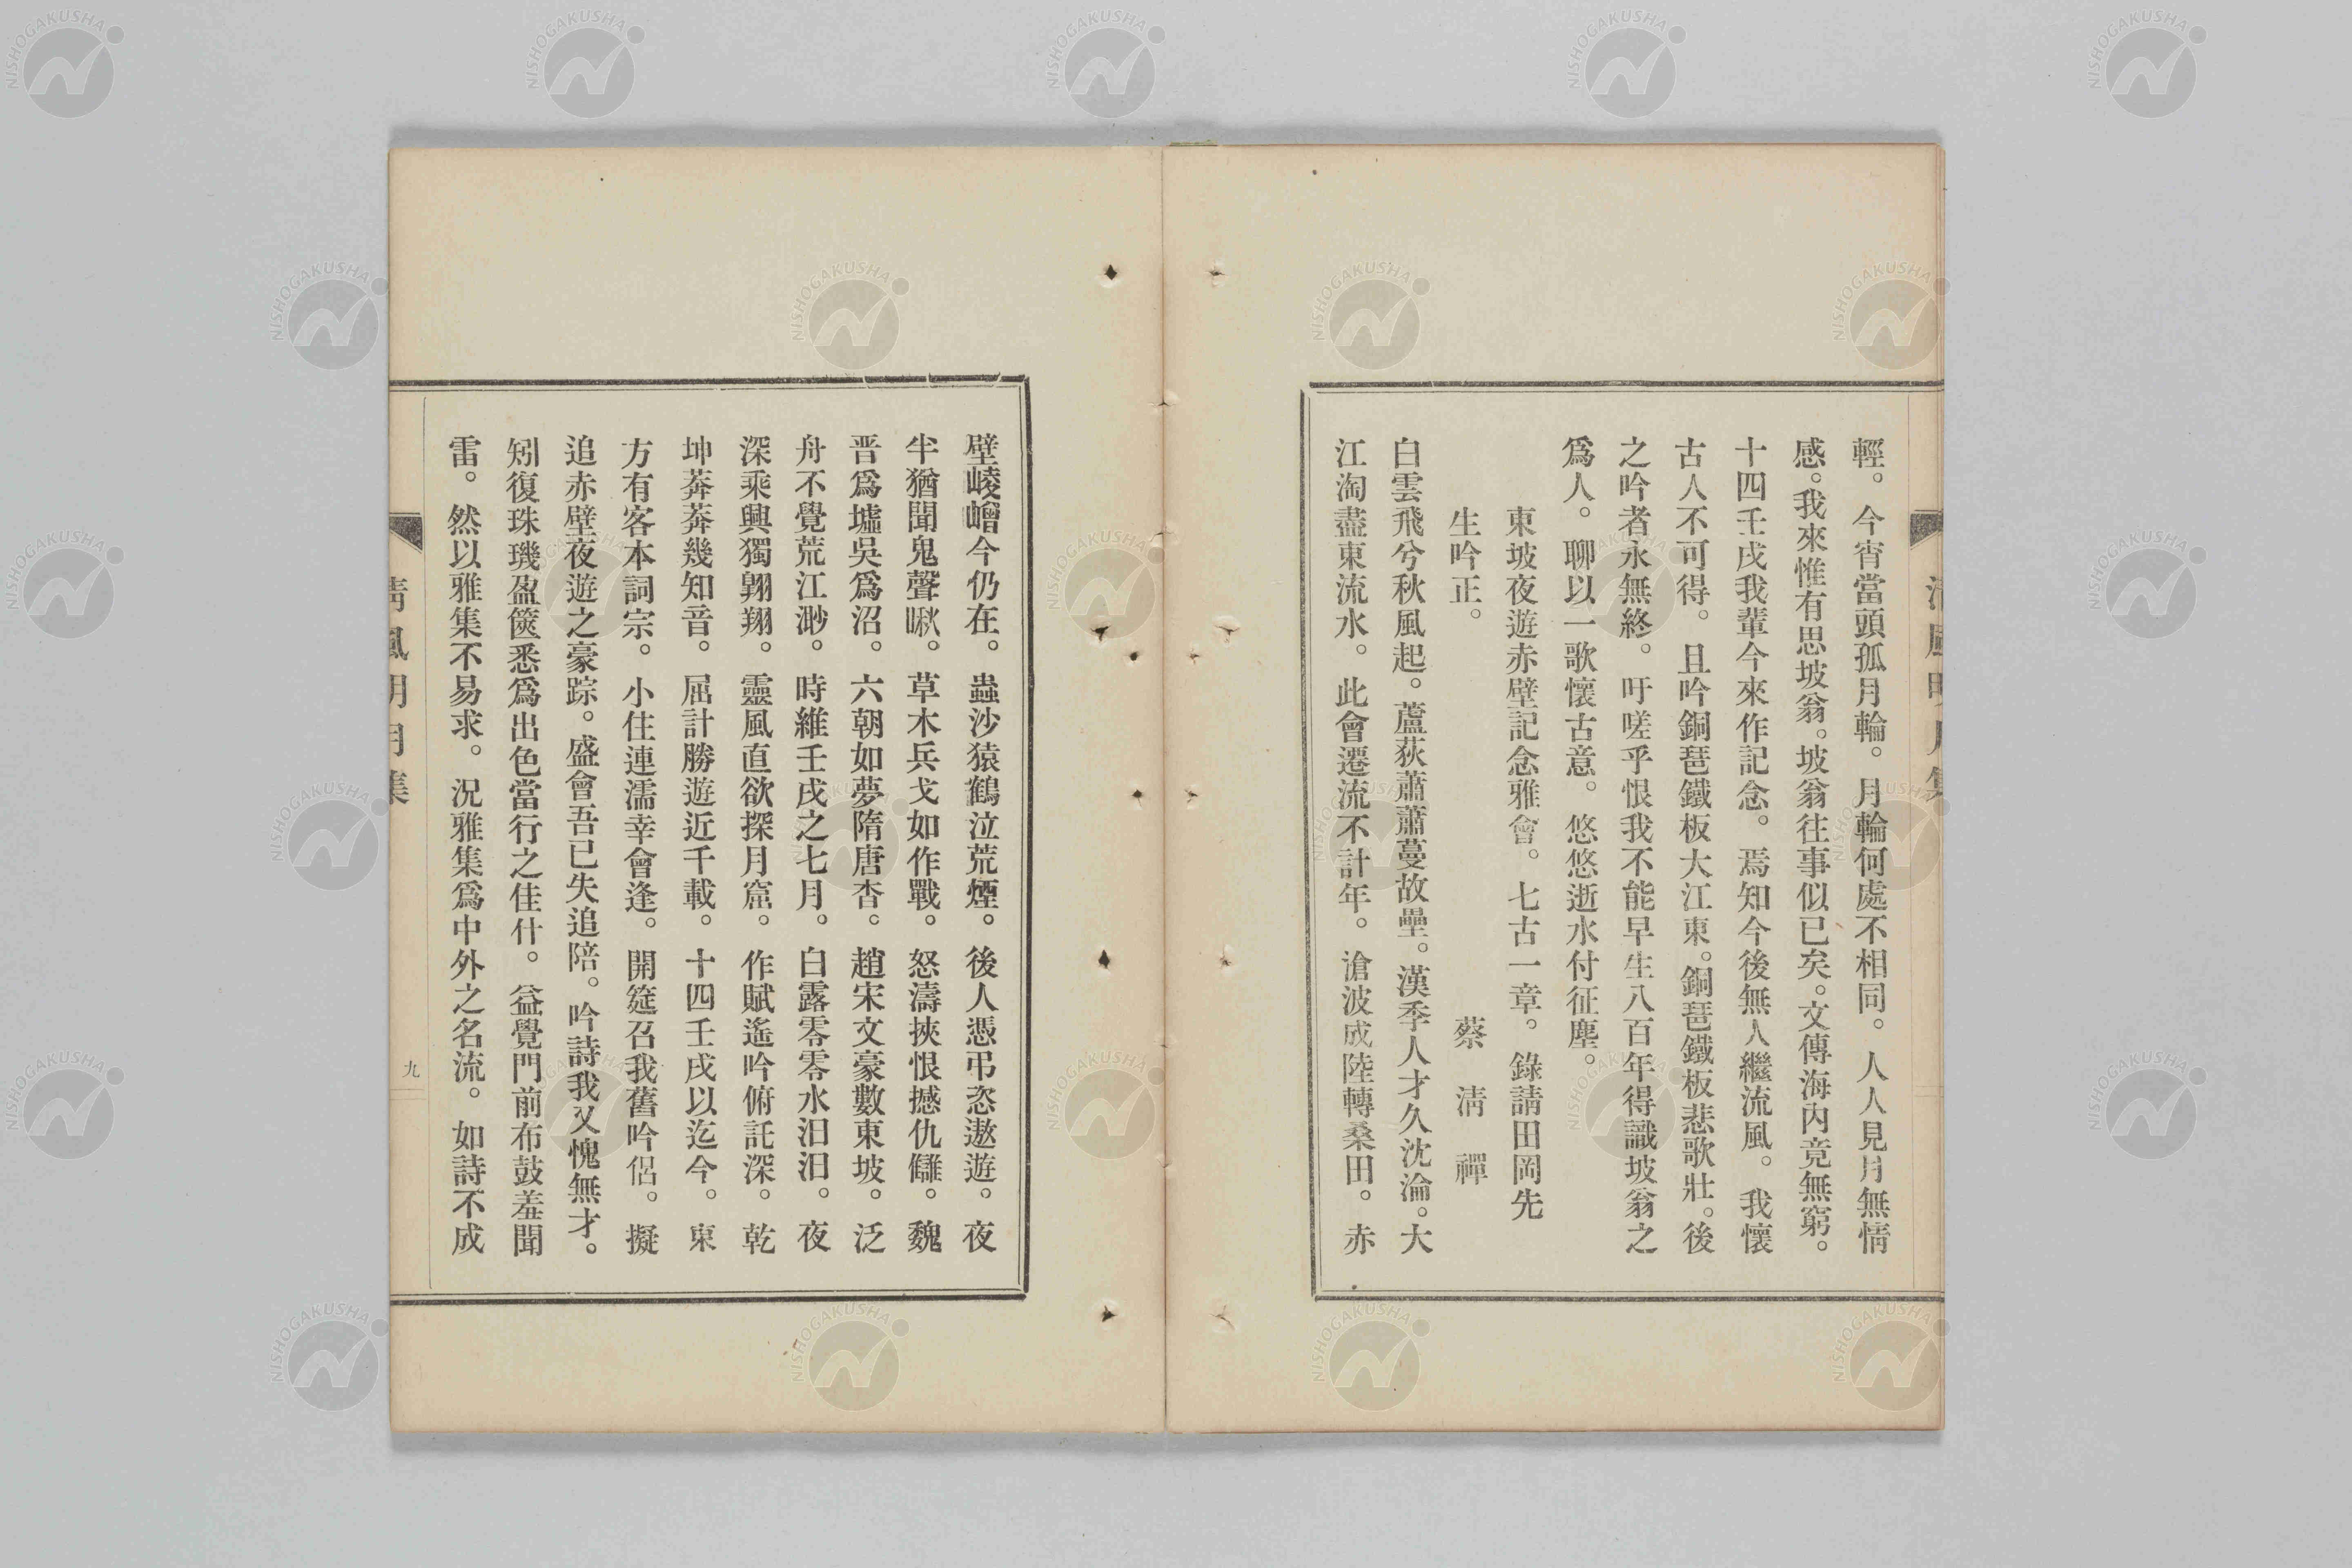 輕。今宵當頭孤月輪。月輪何處不相同。人人見月無情
感。我來惟有思坡翁。坡翁往事似已矣。文傳海內竟無窮。
十四壬戌我輩今來作記念。焉知今後無人繼流風。我懷
古人不可得。且吟銅琶鐵板大江東。銅琶鐵板悲歌壯。後
之吟者永無終。吁嗟乎恨我不能早生八百年得識坡翁之
爲人。聊以一歌懷古意。悠悠逝水付征塵。
東坡夜遊赤壁記念雅會。七古一章。錄請田岡先
生吟正。
蔡清禪
白雲飛兮秋風起。蘆荻蕭蕭蔓故壘。漢季人才久沈淪。大
江淘盡東流水。此會遷流不計年。滄波成陸轉桑田。赤
壁崚嶒今仍在。蟲沙猿鶴泣荒煙。後人憑弔恣遨遊。夜
半猶聞鬼聲啾。草木兵戈如作戰。怒濤挾恨撼仇讎。魏
晋爲墟吳爲沼。六朝如夢隋唐杳。趙宋文豪數東坡。泛
舟不覺荒江渺。時維壬戌之七月。白露零零水汩汩。夜
深乘興獨翺翔。靈風直欲探月窟。作賦遙吟俯託深。乾
坤莽莽幾知音。屈計勝遊近千載。十四壬戌以迄今。東
方有客本詞宗。小住連濡幸會逢。開筵召我舊吟侶。擬
追赤壁夜遊之豪踪。盛會吾已失追陪。吟詩我又愧無才。
矧復珠璣盈篋悉爲出色當行之佳什。益覺門前布鼓羞聞
雷。然以雅集不易求。況雅集爲中外之名流。如詩不成
清風明月集
九